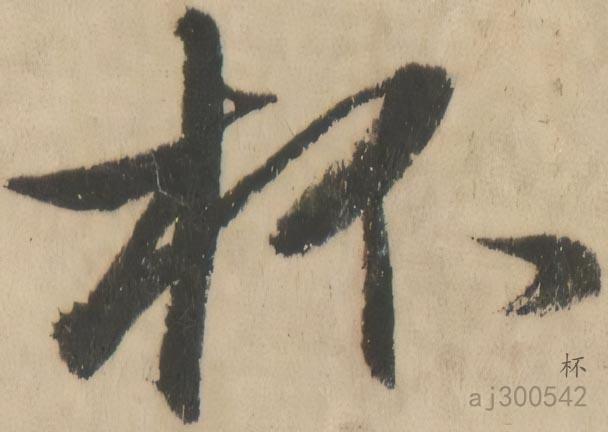 杯
杯
aj300542